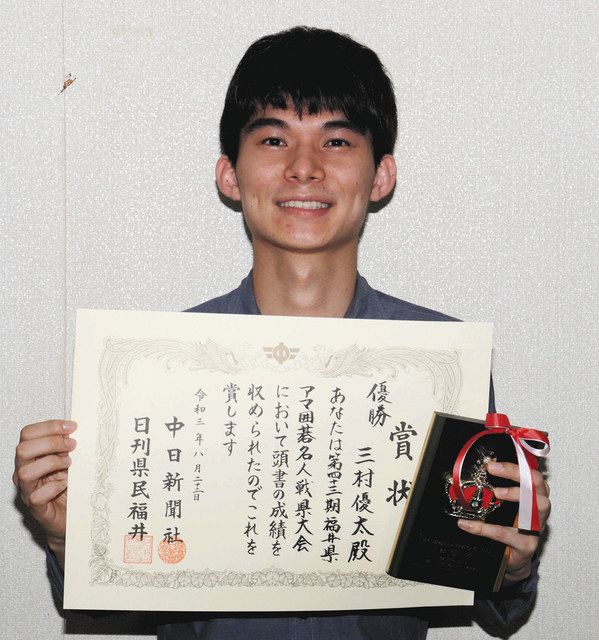 賞状
優勝 三村優太殿
あなたは第四十三期福井県
アマ囲碁名人戦県大会
において頭書の成績を
収められたのでこれを
賞します
令和三年八月二十二日
中日新聞社
日刊県民福井